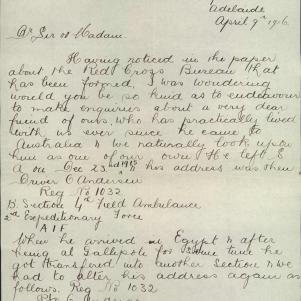 Adelaide
April 9th 1916
Dr Sir or Madam.
Having noticed in the paper
about the Red Cross Bureau that
has been formed, I was wondering
would you be so kind as to endeavour
to make enquiries about a very dear
friend of ours, who has practically lived
with us ever since he came to
Australia & we naturally look upon
him as one of our own. He left S
A on Dec 23rd 1915 & his address was then
Driver C Andersen
Reg No 1032
B. Section 4th Field Ambulance
2nd Expeditionary Force
A I F
When he arrived in Egypt & after
being at Gallipoli for some time he
got transfered into another Section & we
had to alter his address again as
follows. Reg No 1032